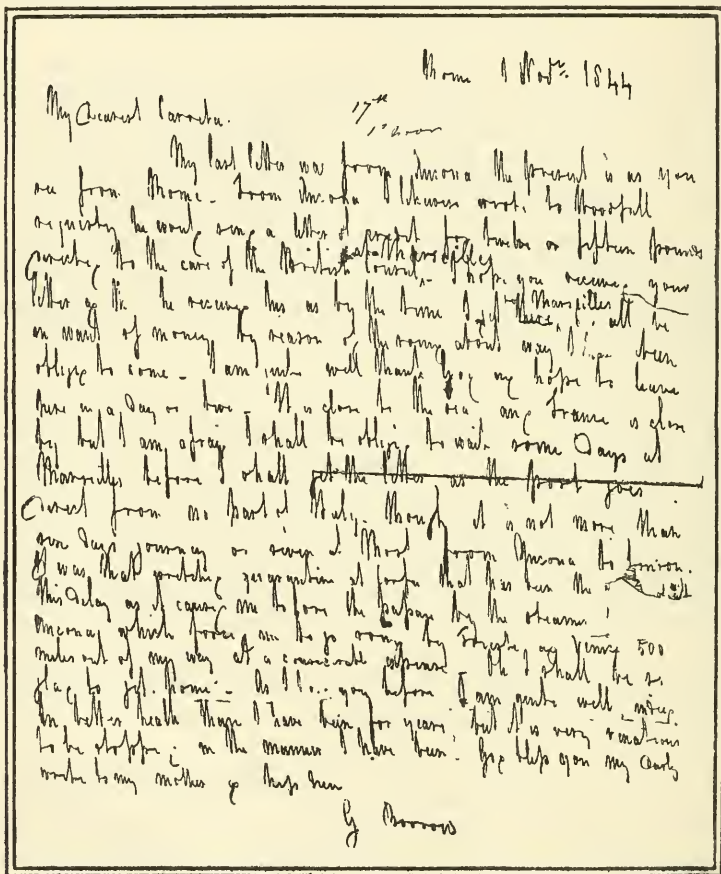 Rome 1 Nov.r 1844
My dearest Carreta.
My last letter was from Ancona the present is as you
see from Rome. From Ancona I likewise wrote to Woodfall
requesting he would send a letter of credit for twelve or fifteen pounds
directed to the care of the British Consul Marseilles I hope you received your
letter he received his as by the time I get Marseilles I be
in want of money by reason of the round about way I have been
obliged to come. I am well thank God and hope to leave
here in a day or two. It is close to the sea and France is close
by but I am afraid I shall be obliged to wait some days at
Marseilles before I shall get the letter as the post goes
direct from no part of Italy though it is not more than
six days journey or seven at most from Ancona to London.
It was that wretched quarantine at Corfu that has been the
this delay as it caused me to lose the passage by the steamer
Ancona which forced me to go round by Trieste and Venice 500
miles out of my way at a considerable expense I shall be so
glad to get home. As I you before I am quite well indeed
in better health than I have been for years but it is very vexatious
to be stopped in the manner I have been. God bless you my darling
write to my mother & kiss her
G Borrow